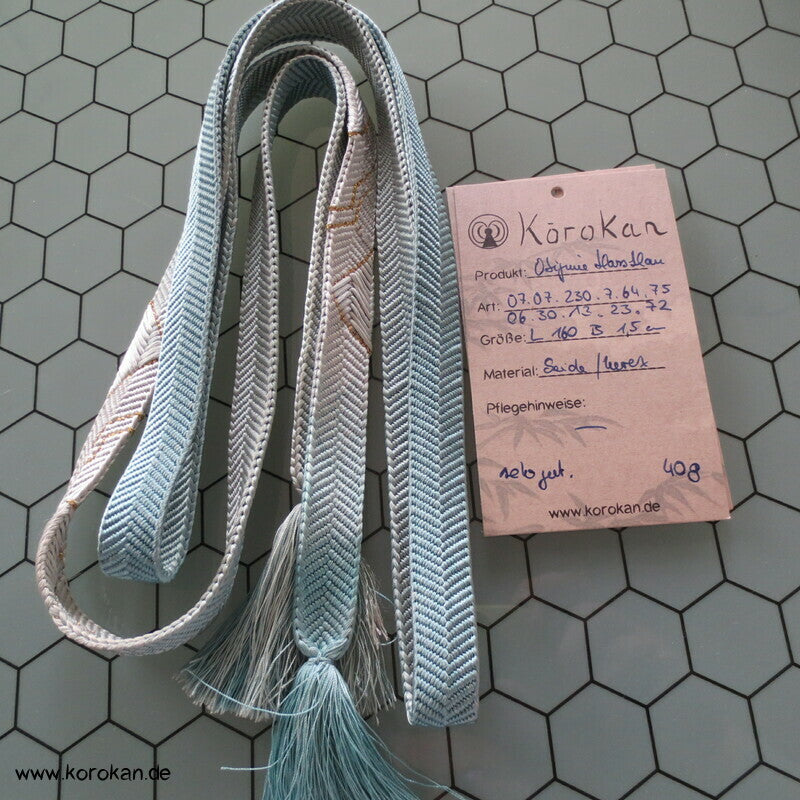 KōroKan
Produkt: Obijime
Art: 07.07.230.7.64.75
06.30.13.23.72
Größe: L 160 B 1,5 cm
Material: Seide /
Pflegehinweise:
—
sehr gut. 40g
www.korokan.de
www.korokan.de